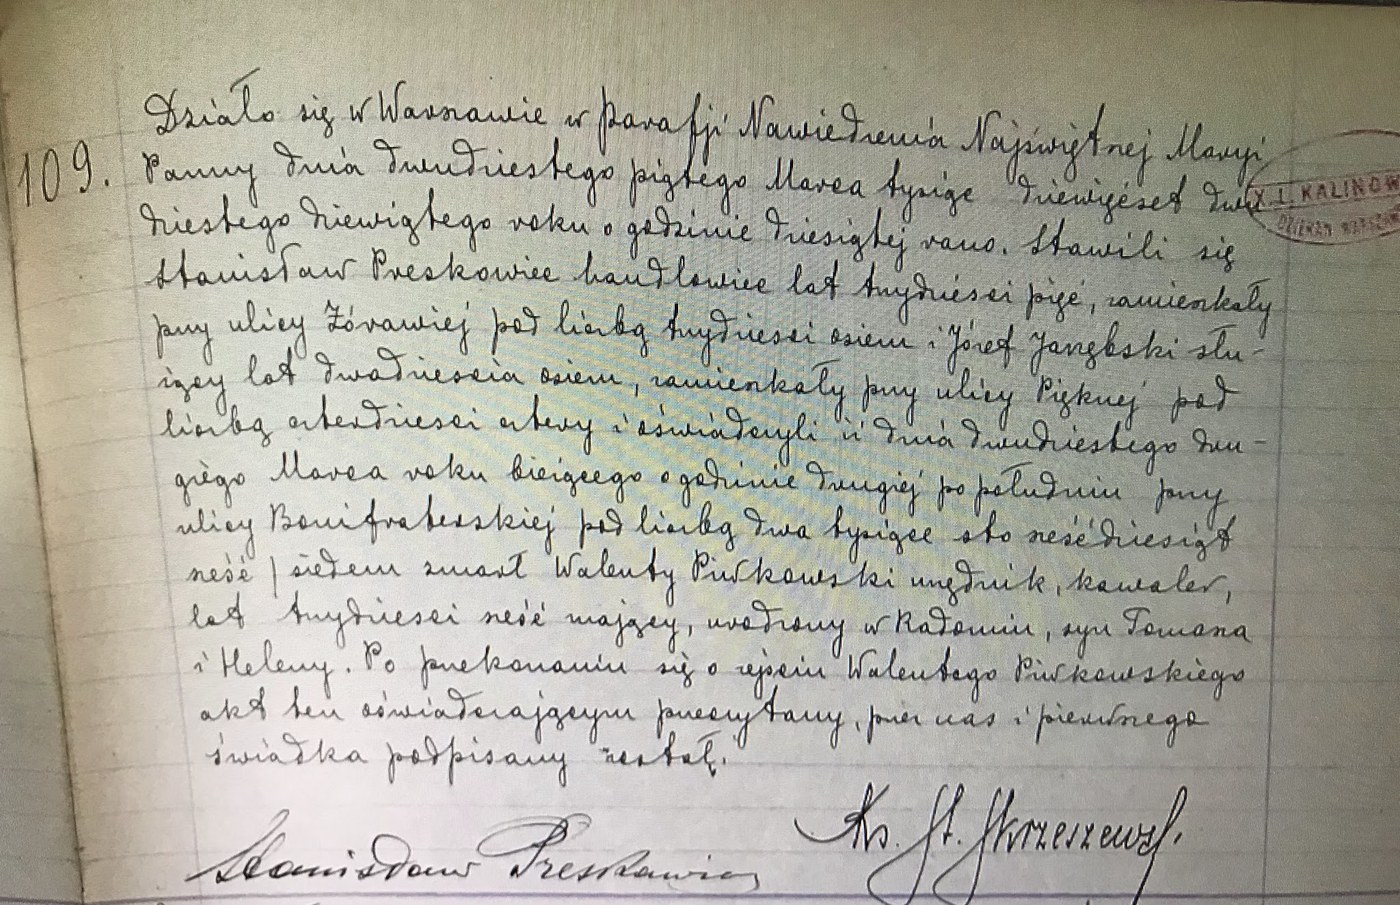 Działo się w Warszawie w Parafji Nawiedzenia Najświętszej Maryi
109. Panny dnia dwudziestego piątego Marca tysiąc dziewięćset dwu
dziestego dziewiątego roku o godzinie dziesiątej rano. Stawili się
X. I. KALINOW
DZIEKAN WARSZAW
Stanisław Preskowicz handlowiec lat trzydzieści pięć, zamieszkały
przy ulicy Żórawiej pod liczbą trzydzieści osiem i Józef Jarzębski słu-
żący lat dwadzieścia osiem, zamieszkały przy ulicy Pięknej pod
liczbą czterdzieści cztery i oświadczyli iż dnia dwudziestego dru-
giego Marca roku bieżącego o godzinie drugiej po południu przy
ulicy Bonifraterskiej pod liczbą dwa tysiące sto sześćdziesiąt
sześć / siedem zmarł Walenty Piwkowski urzędnik, kawaler,
lat trzydzieści sześć mający, urodzony w Radomiu, syn Tomasza
i Heleny. Po przekonaniu się o zejściu Walentego Piwkowskiego
akt ten oświadczającym przeczytany, przez nas i pierwszego
świadka podpisany został.
Stanisław Preskowicz Ks. St. Skrzeszewski